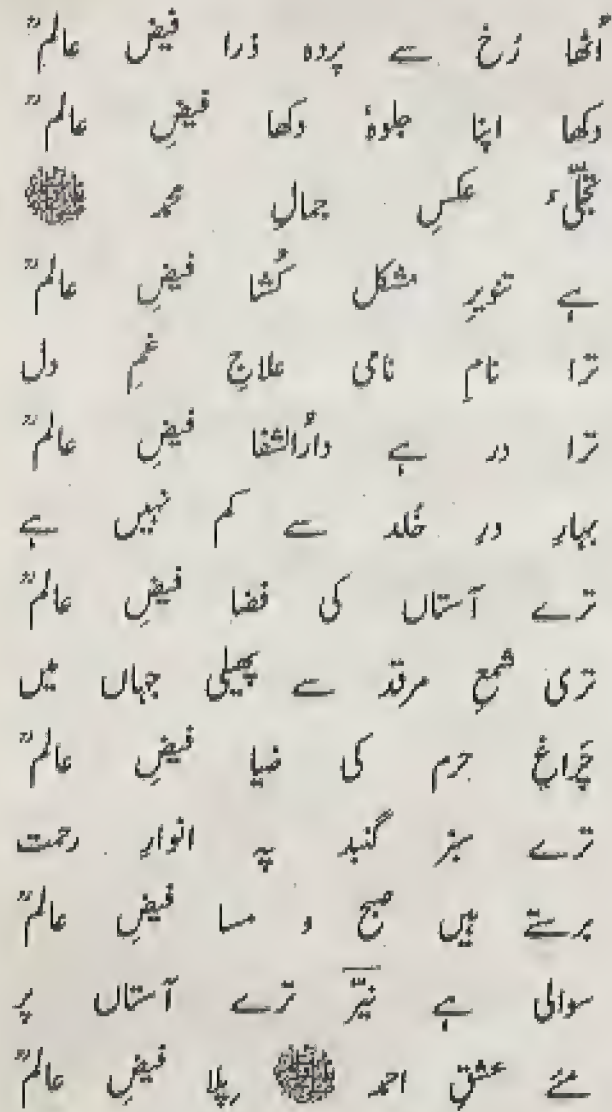 اُٹھا رُخ سے پردہ ذرا فیضِ عالمؒ
دکھا اپنا جلوۂ دکھا فیضِ عالمؒ
تجلّیٔ عکسِ جمالِ محمد ﷺ
ہے تنویرِ مشکل کُشا فیضِ عالمؒ
ترا نامِ نامی علاجِ غمِ دل
ترا در ہے دارُالشفا فیضِ عالمؒ
بہارِ درِ خُلد سے کم نہیں ہے
ترے آستاں کی فضا فیضِ عالمؒ
تری شمعِ مرقد سے پھیلی جہاں میں
چَراغِ حرم کی ضیا فیضِ عالمؒ
ترے سبز گنبد پہ انوارِ رحمت
برستے ہیں صبح و مسا فیضِ عالمؒ
سوالی ہے نیّرؔ ترے آستاں پر
مئے عشقِ احمد ﷺ پِلا فیضِ عالمؒ